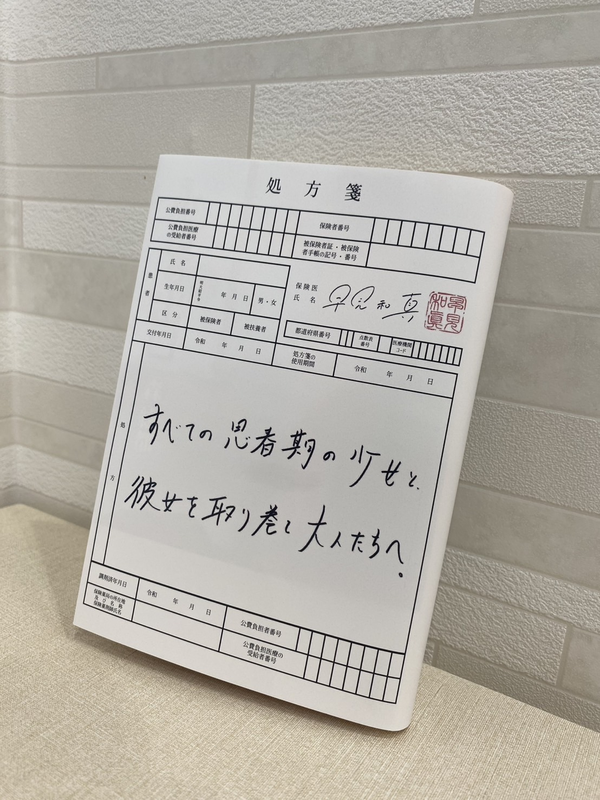 処方箋
公費負担番号
保険者番号
公費負担医療
の受給者番号
被保険者証・被保険
者手帳の記号・番号
患者
氏名
生年月日
年 月 日 男・女
区分
被保険者
被扶養者
保険医
氏名
早見和真
早見和真
都道府県番号
点数表
番号
医療機関
コード
交付年月日
令和 年 月 日
処方箋の
使用期間
令和 年 月 日
処方
すべての思春期の少女と、
彼女を取り巻く大人たちへ。
調剤済年月日
令和 年 月 日
公費負担者番号
保険薬局の所在地
及び名称
保険薬剤師氏名
公費負担医療の
受給者番号